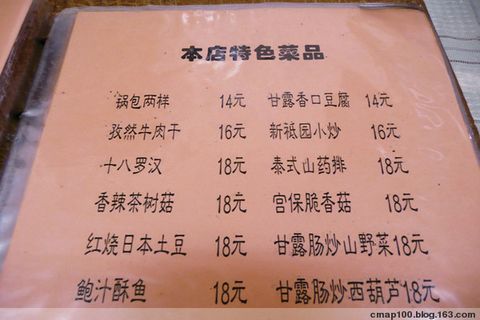 本店特色菜品
锅包两样 14元 甘露香口豆腐 14元
孜然牛肉干 16元 新祗园小炒 16元
十八罗汉 18元 泰式山药排 18元
香辣茶树菇 18元 宫保脆香菇 18元
红烧日本土豆 18元 甘露肠炒山野菜 18元
鲍汁酥鱼 18元 甘露肠炒西葫芦 18元
cmap100.blog.163.com